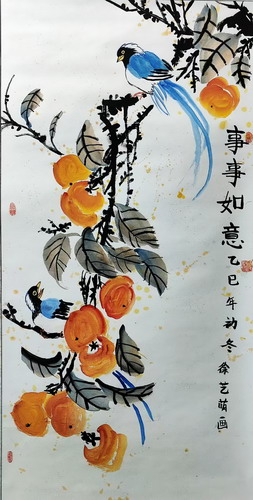 事事如意
乙巳年初冬徐艺萌画